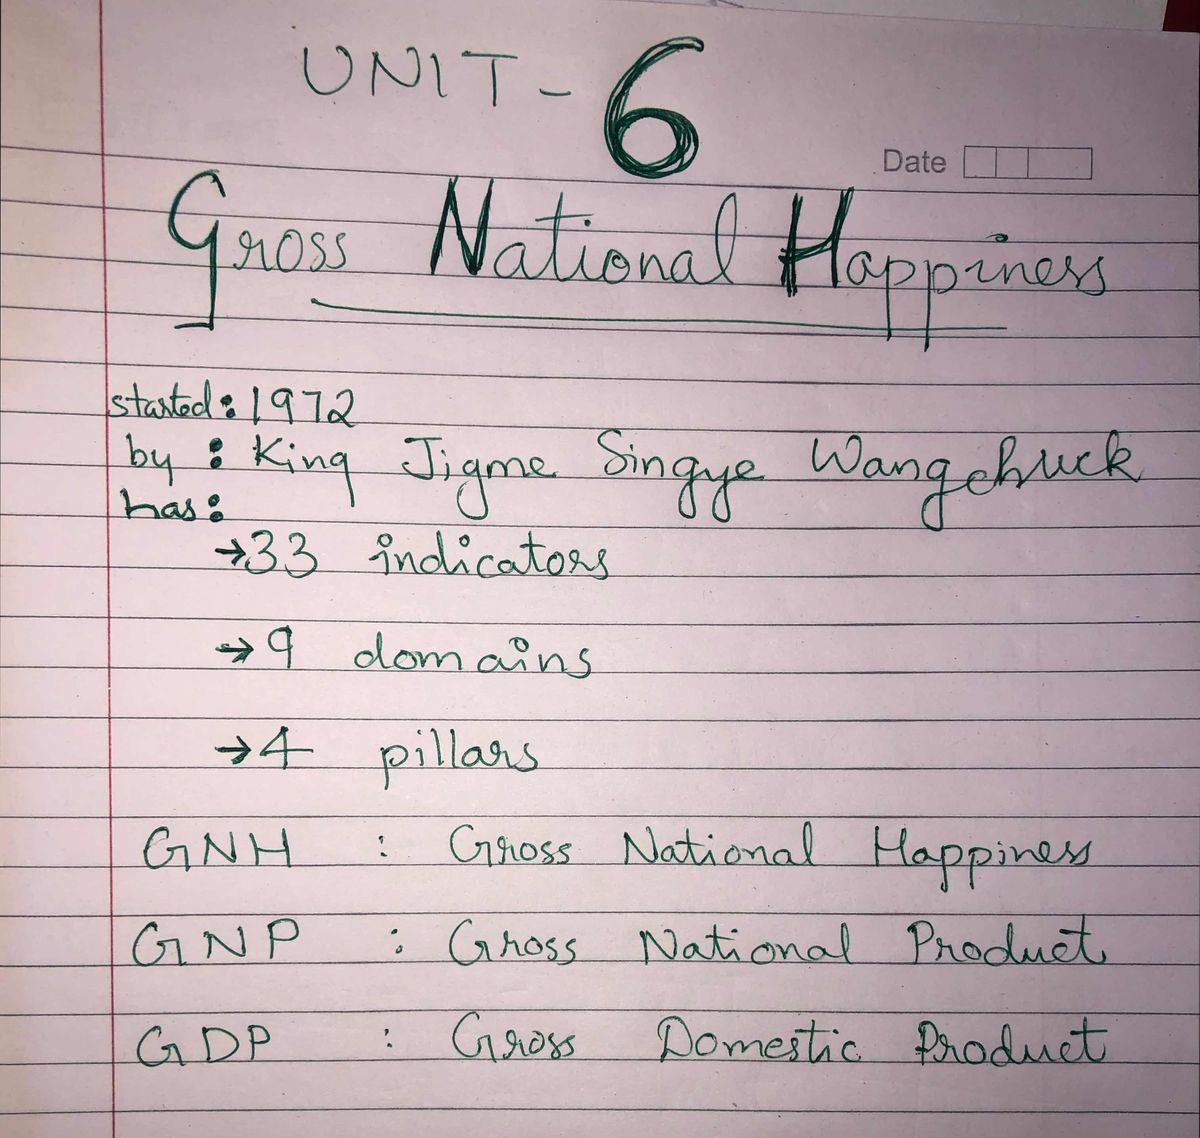 UNIT-6
Date
Gross National Happiness
started: 1972
by: King Jigme Singye Wangchuck
has:
→33 indicators
→9 domains
→4 pillars
GNH : Gross National Happiness
GNP : Gross National Product
GDP : Gross Domestic Product